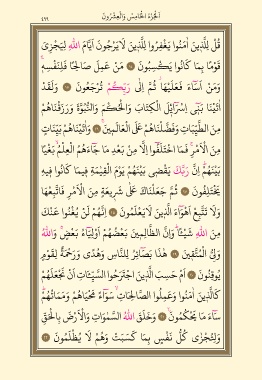 الجزء الخامس والعشرون
٤٩٩
قُلْ لِلَّذِينَ اٰمَنُوا يَغْفِرُوا لِلَّذِينَ لَا يَرْجُونَ اَيَّامَ اللّٰهِ لِيَجْزِيَ
قَوْمًا بِمَا كَانُوا يَكْسِبُونَ ١٤ مَنْ عَمِلَ صَالِحًا فَلِنَفْسِهِ
وَمَنْ اَسَاءَ فَعَلَيْهَا ثُمَّ اِلٰى رَبِّكُمْ تُرْجَعُونَ ١٥ وَلَقَدْ
اٰتَيْنَا بَنِي اِسْرَائِلَ الْكِتَابَ وَالْحُكْمَ وَالنُّبُوَّةَ وَرَزَقْنَاهُمْ
مِنَ الطَّيِّبَاتِ وَفَضَّلْنَاهُمْ عَلَى الْعَالَمِينَ ١٦ وَاٰتَيْنَاهُمْ بَيِّنَاتٍ
مِنَ الْاَمْرِ فَمَا اخْتَلَفُوا اِلَّا مِنْ بَعْدِ مَا جَاءَهُمُ الْعِلْمُ بَغْيًا
بَيْنَهُمْ اِنَّ رَبَّكَ يَقْضِي بَيْنَهُمْ يَوْمَ الْقِيٰمَةِ فِيمَا كَانُوا فِيهِ
يَخْتَلِفُونَ ١٧ ثُمَّ جَعَلْنَاكَ عَلٰى شَرِيعَةٍ مِنَ الْاَمْرِ فَاتَّبِعْهَا
وَلَا تَتَّبِعْ اَهْوَاءَ الَّذِينَ لَا يَعْلَمُونَ ١٨ اِنَّهُمْ لَنْ يُغْنُوا عَنْكَ
مِنَ اللّٰهِ شَيْئًا وَاِنَّ الظَّالِمِينَ بَعْضُهُمْ اَوْلِيَاءُ بَعْضٍ وَاللّٰهُ
وَلِيُّ الْمُتَّقِينَ ١٩ هٰذَا بَصَائِرُ لِلنَّاسِ وَهُدًى وَرَحْمَةٌ لِقَوْمٍ
يُوقِنُونَ ٢٠ اَمْ حَسِبَ الَّذِينَ اجْتَرَحُوا السَّيِّـَٔاتِ اَنْ نَجْعَلَهُمْ
كَالَّذِينَ اٰمَنُوا وَعَمِلُوا الصَّالِحَاتِ سَوَاءً مَحْيَاهُمْ وَمَمَاتُهُمْ
سَاءَ مَا يَحْكُمُونَ ٢١ وَخَلَقَ اللّٰهُ السَّمٰوَاتِ وَالْاَرْضَ بِالْحَقِّ
وَلِتُجْزٰى كُلُّ نَفْسٍ بِمَا كَسَبَتْ وَهُمْ لَا يُظْلَمُونَ ٢٢